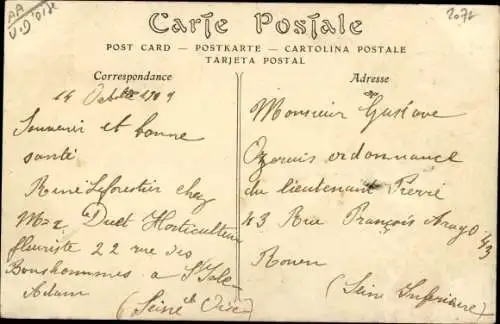 AA
V. d'Oise
2071
Carte Postale
POST CARD — POSTKARTE — CARTOLINA POSTALE
TARJETA POSTAL
Correspondance
14 Octobre 1909
Souvenir et bonne
santé
René Leforestier chez
Duet Horticulteur
fleuriste 22 rue des
Bonshommes a
Adam
(Seine et Oise)
Adresse
Monsieur Gustave
ordonnance
du lieutenant
43 Rue François Arago 43
Rouen
(Seine Inferieure)